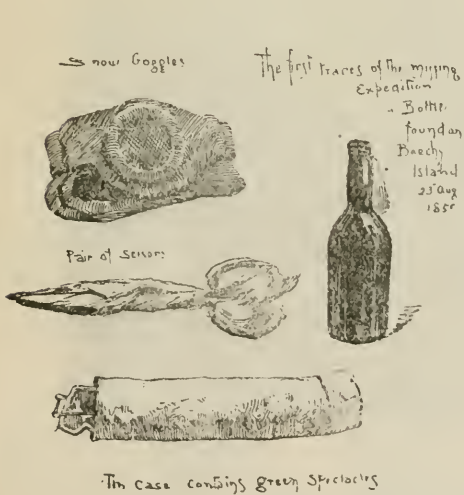 Snow Goggles
The first traces of the missing
Expedition
a Bottle
found on
Beechy
Island
23 Aug
1850
Pair of Scissors
Tin case contains green Spectacles